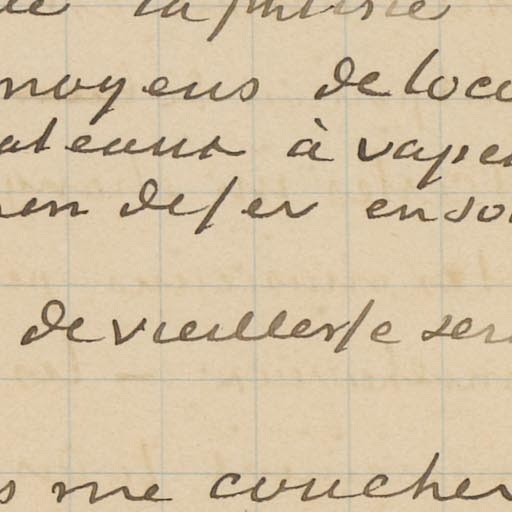 moyens de loco
ateaux à vape
de fer en so
de vieillesse ser
s me coucher